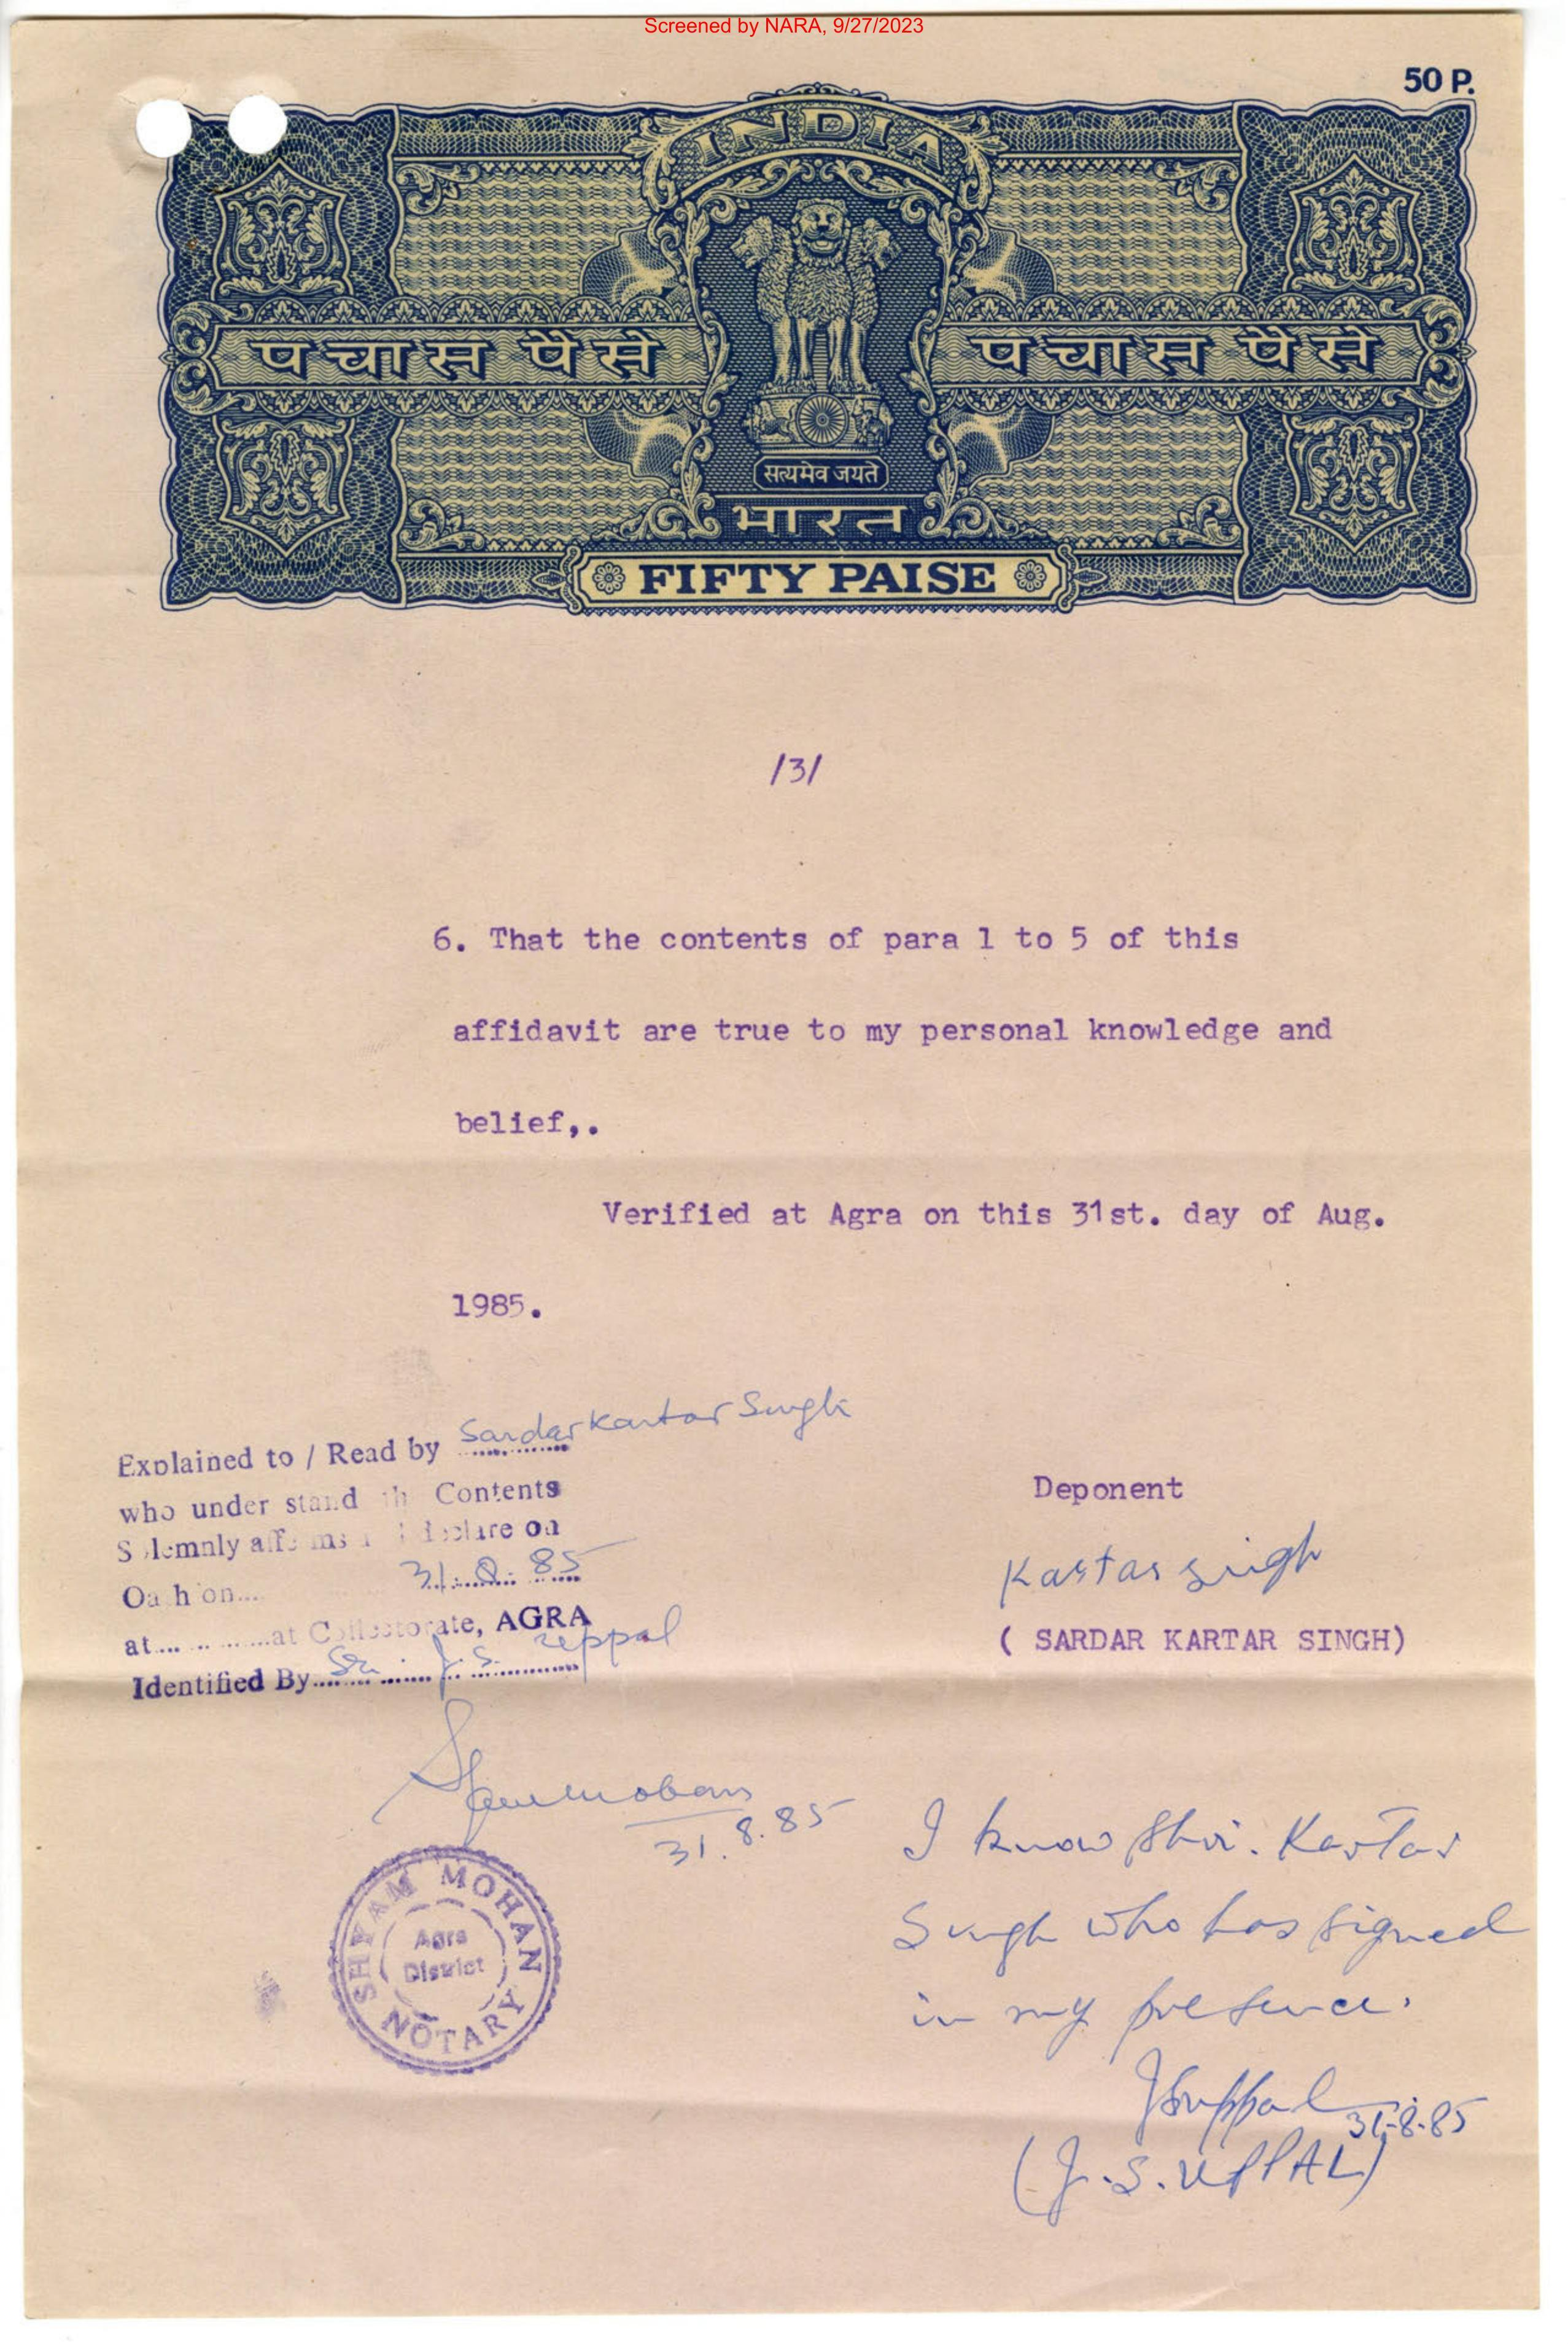 Screened by NARA, 9/27/2023
50 P.
INDIA
पचास पैसे पचास पैसे
सत्यमेव जयते
भारत
FIFTY PAISE
/3/
6. That the contents of para 1 to 5 of this
affidavit are true to my personal knowledge and
belief,.
Verified at Agra on this 31st. day of Aug.
1985.
Explained to / Read by Sardar Kartar Singh
who under stand th Contents
S lemnly aff ms declare on
Oa h on.... 31.8.85
at............at Collectorate, AGRA
Identified By Sri. J. S. Uppal
Deponent
Kartar Singh
( SARDAR KARTAR SINGH)
Shyam Mohan
31.8.85
SHYAM MOHAN
Agra
District
NOTARY
I know Shri. Kartar
Singh who has signed
in my presence.
JSUppal 31-8-85
(J.S. UPPAL)